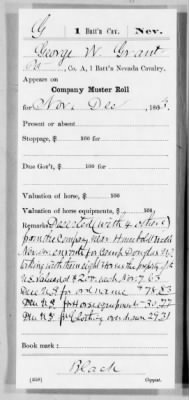 G | 1 Batt'n Cav. | Nev.
George W. Grant
Pvt, Co. A, 1 Batt'n Nevada Cavalry.
Appears on
Company Muster Roll
for Nov. Dec, 1863.
Present or absent
Stoppage, $ 100 for
Due Gov't, $ 100 for
Valuation of horse, $ 100
Valuation of horse equipments, $ 100
Remarks: Deserted (with 4 others)
from the Company near Humboldt Wells
Nev. en route for Camp Douglas U.T.
taking with them eight Horses the property of the
U.S. valued at $200. each Nov. 7. 63
Due U.S. for ord. name $78.53
Due U.S. for Horse equipments 30.77
Due U.S. for Clothing over drawn 29.31
Book mark:
Black
(358) Copyist.